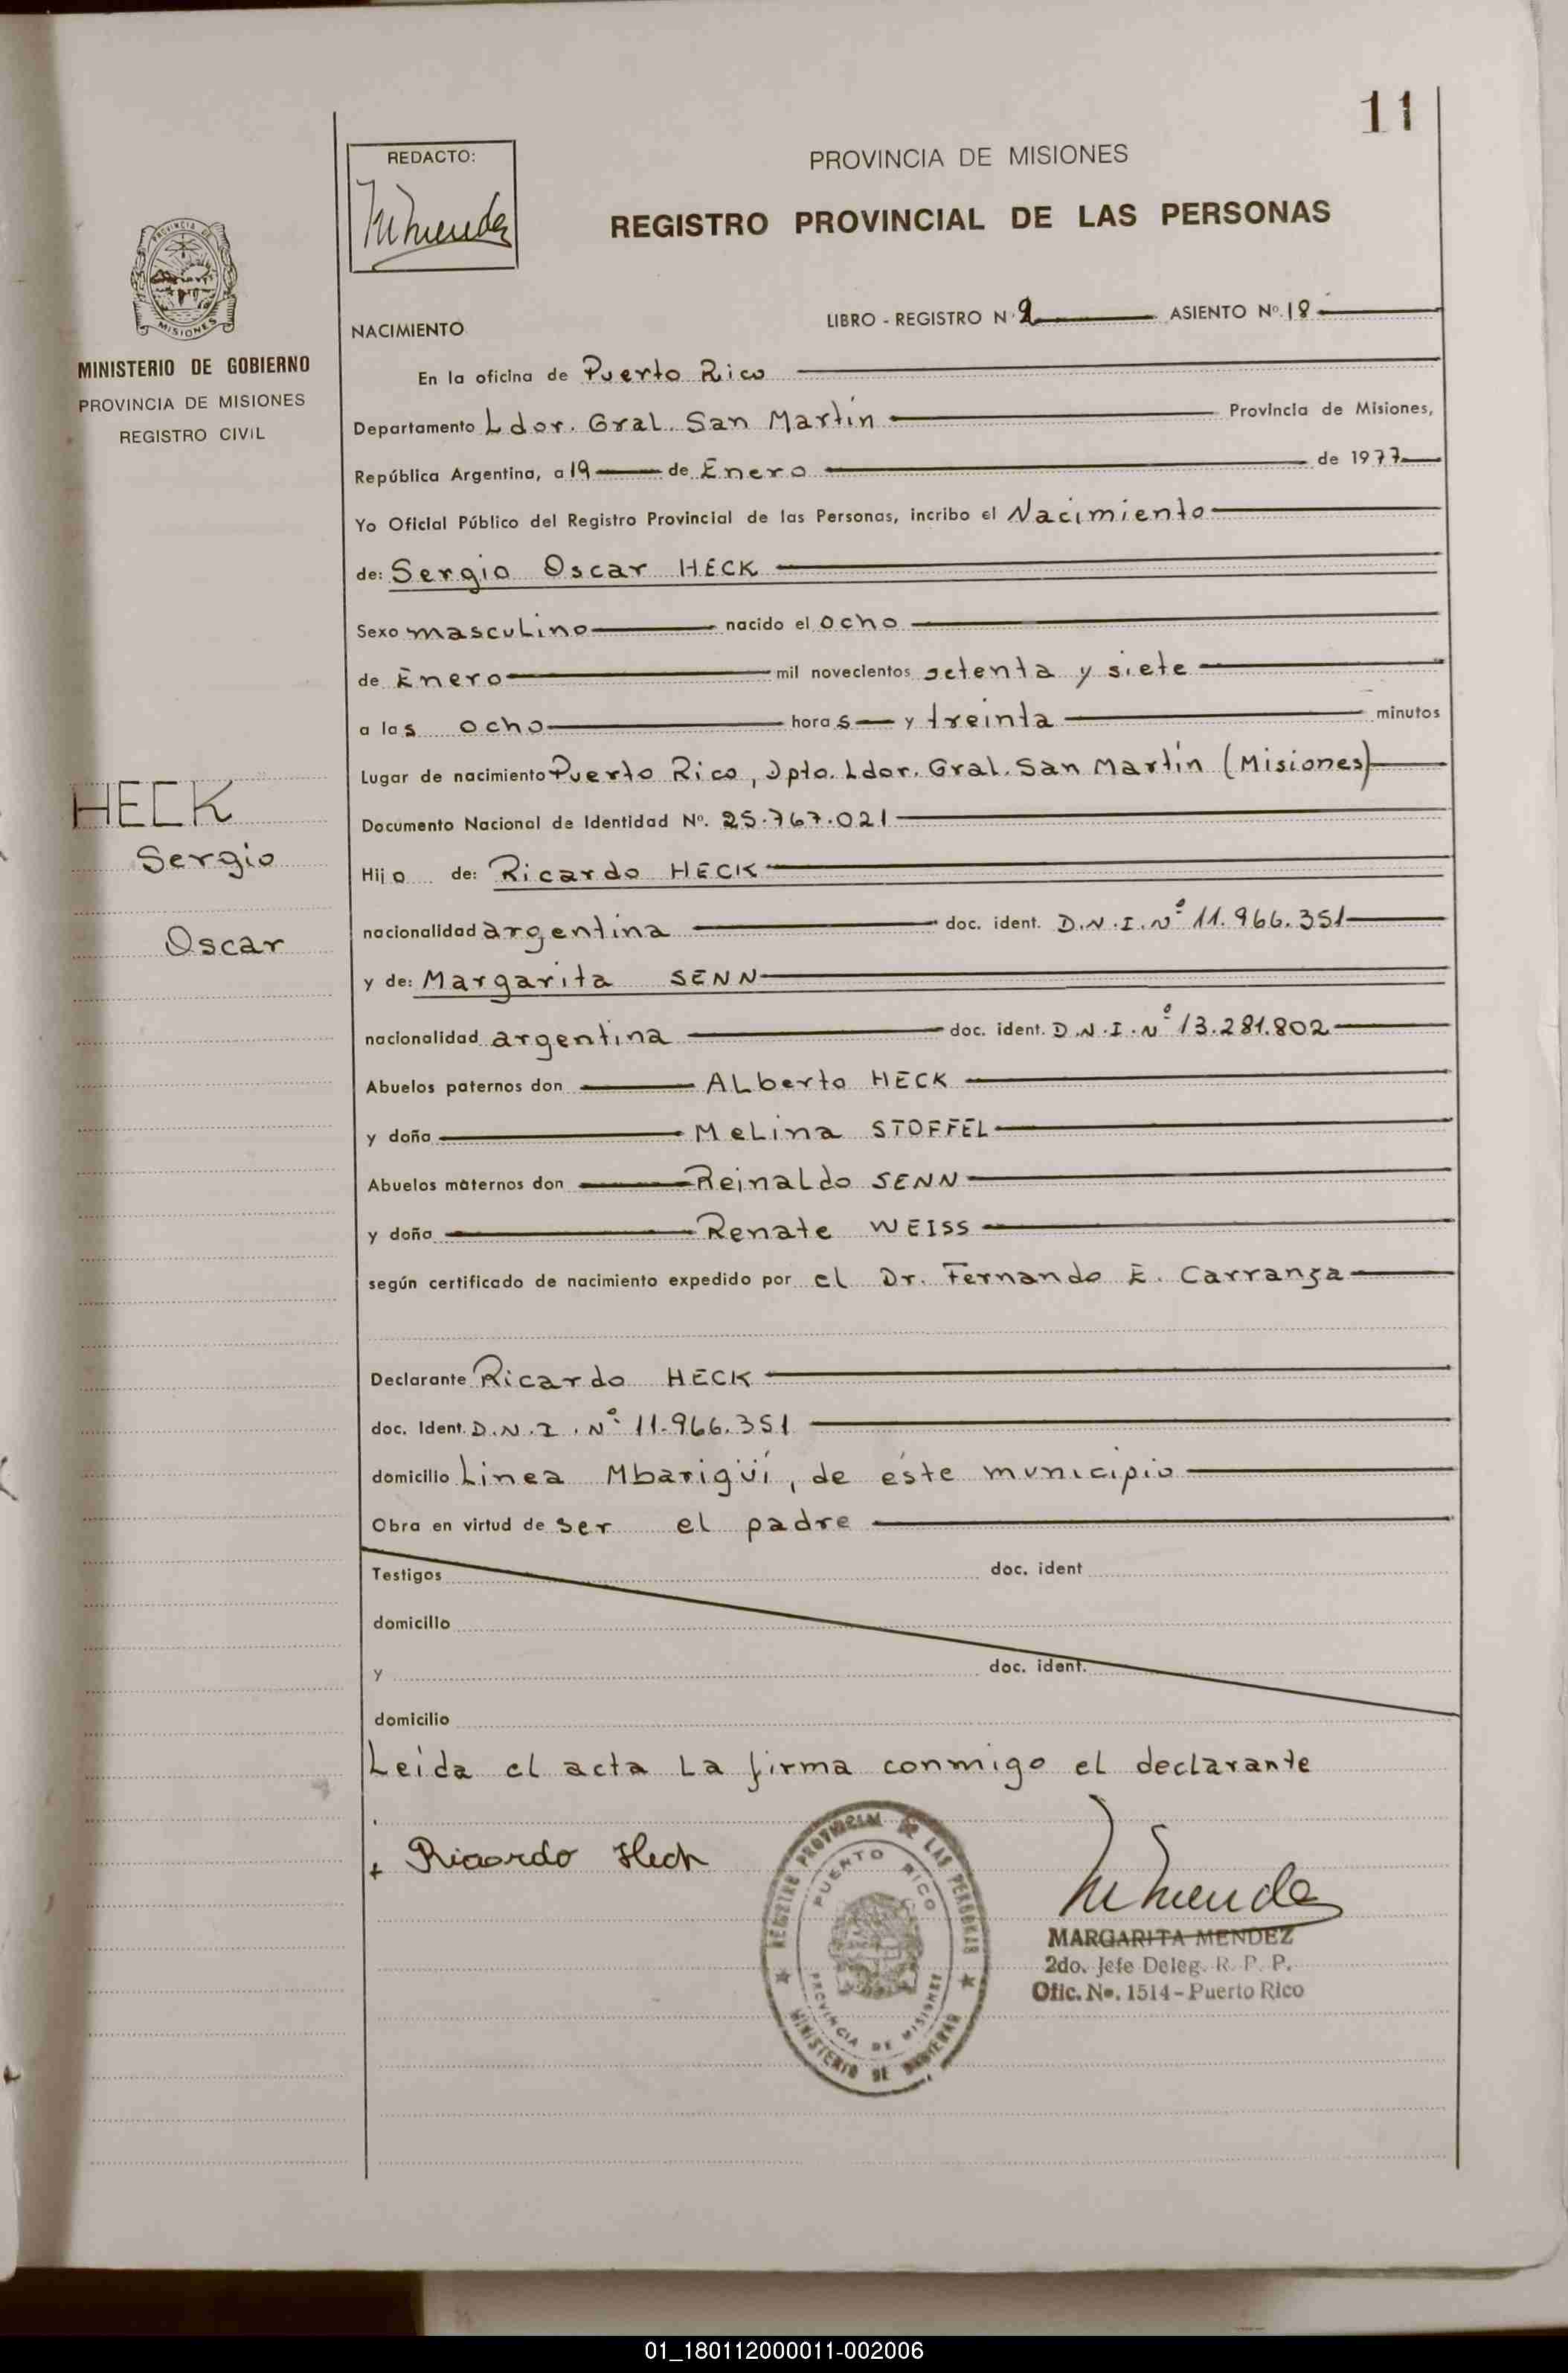 11
REDACTO:
PROVINCIA DE MISIONES
REGISTRO PROVINCIAL DE LAS PERSONAS
PROVINCIA DE
MISIONES
MINISTERIO DE GOBIERNO
PROVINCIA DE MISIONES
REGISTRO CIVIL
NACIMIENTO LIBRO - REGISTRO N° 2 ASIENTO Nº. 18
En la oficina de Puerto Rico
Departamento Ldor. Gral. San Martín Provincia de Misiones,
República Argentina, a 19 de Enero de 1977
Yo Oficial Público del Registro Provincial de las Personas, incribo el Nacimiento
de: Sergio Oscar HECK
Sexo masculino nacido el ocho
de Enero mil novecientos setenta y siete
a las ocho horas y treinta minutos
Lugar de nacimiento Puerto Rico, Dpto. Ldor. Gral. San Martín (Misiones)
Documento Nacional de Identidad Nº. 25.767.021
Hijo de: Ricardo HECK
nacionalidad argentina doc. ident. D.N.I.Nº 11.966.351
y de: Margarita SENN
nacionalidad argentina doc. ident. D.N.I.Nº 13.281.802
Abuelos paternos don Alberto HECK
y doña Melina STOFFEL
Abuelos maternos don Reinaldo SENN
y doña Renate WEISS
según certificado de nacimiento expedido por el Dr. Fernando E. Carranza
Declarante Ricardo HECK
doc. Ident. D.N.I.Nº 11.966.351
domicilio Línea Mbarigüí, de éste municipio
Obra en virtud de ser el padre
Testigos doc. ident
domicilio
y doc. ident.
domicilio
Leída el acta la firma conmigo el declarante
HECK
Sergio
Oscar
Ricardo Heck
REGISTRO PROVINCIAL DE LAS PERSONAS
PUERTO RICO
PROVINCIA DE MISIONES
MINISTERIO DE GOBIERNO
MARGARITA MENDEZ
2do. Jefe Deleg. R. P. P.
Ofic. Nº. 1514 - Puerto Rico
01_180112000011-002006